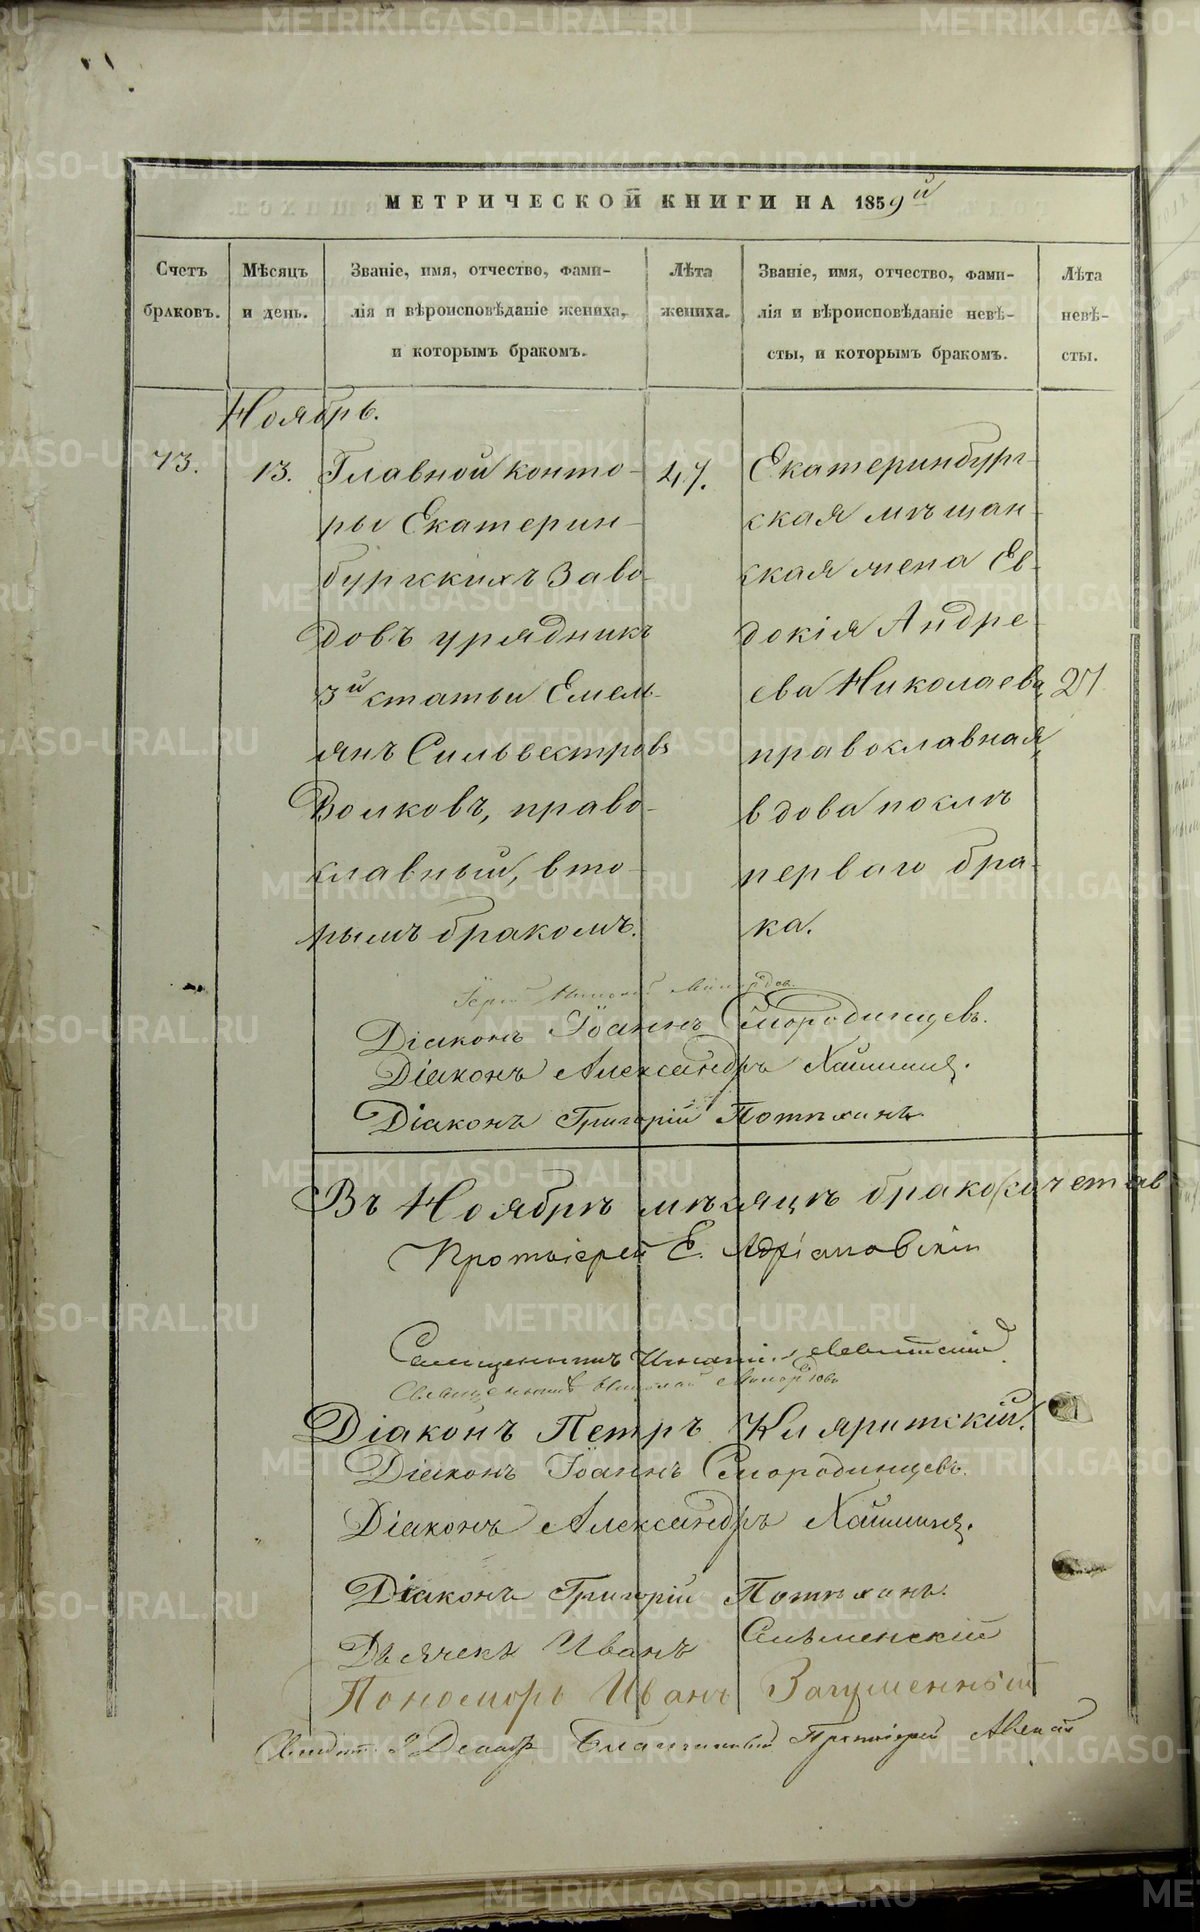 МЕТРИЧЕСКОЙ КНИГИ НА 1859й
Счетъ браковъ.
Мѣсяцъ и день.
Званіе, имя, отчество, фами-
лія и вѣроисповѣданіе жениха,
и которымъ бракомъ.
Лѣта жениха.
Званіе, имя, отчество, фами-
лія и вѣроисповѣданіе невѣ-
сты, и которымъ бракомъ.
Лѣта невѣ-
сты.
Ноябрь.
73.
13.
Главной конто-
ры Екатерин-
бургскихъ Заво-
довъ урядникъ
3й статьи Емель-
янъ Сильвестровъ
Волковъ, право-
славный, вто-
рымъ бракомъ.
47.
Екатеринбург-
ская мѣщан-
ская жена Ев-
докія Андре-
ева Николаева,
православная,
вдова послѣ
перваго бра-
ка.
27
Діаконъ Іоаннъ Смородинцевъ.
Діаконъ Александръ
Діаконъ Григорій Потѣхинъ
Въ Ноябрѣ мѣсяцѣ бракосочетав
Протоіерей Е. Адріановскій
Священникъ Игнатій Левитскій
Священникъ Николай
Діаконъ Петръ Кляритскій.
Діаконъ Іоаннъ Смородинцевъ.
Діаконъ Александръ
Діаконъ Григорій Потѣхинъ.
Дьячекъ Иванъ
Пономорь Иванъ Загуменный
Благочинный Протоіерей
METRIKI.GASO-URAL.RU